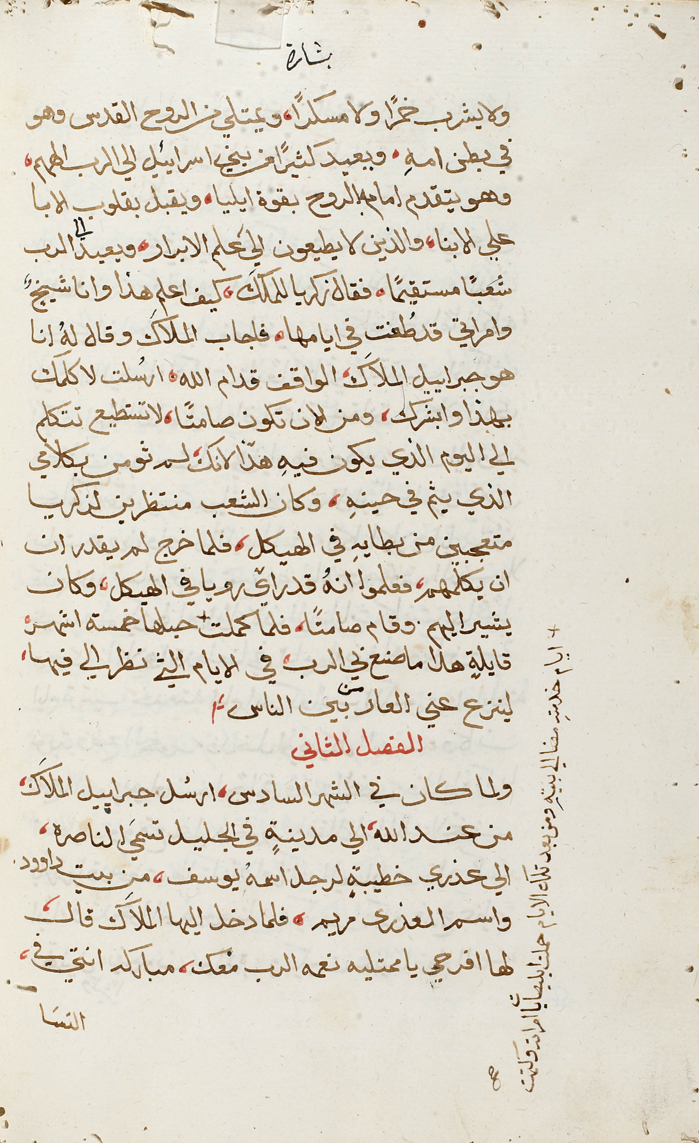 بشارة
ولا يشرب خمرًا ولا مسكرًا، ويمتلي من الروح القدس وهو
في بطن امهِ، ويعيد كثيرًا من بني اسراييل الي الرب الههم،
وهو يتقدم امامه الروح بقوة ايليا، ويقبل بقلوب الابا
علي الابنا، والذين لا يطيعون الي علم الابرار، ويعيد الي الرب
شعبًا مستقيمًا، فقال زكريا للملاك، كيف اعلم هذا وانا شيخ،
وامراتي قد طعنت في ايامها، فاجاب الملاك وقال لهُ انا
هو جبراييل الملاك، الواقف قدام الله، ارسلت لاكلمك
بهذا وابشرك، ومن الان تكون صامتًا، لا تستطيع تتكلم
الي اليوم الذي يكون فيه هذا، لانك لم تومن بكلامي
الذي يتم في حينهِ، وكان الشعب منتظرين لزكريا
متعجبين من بطايهِ في الهيكل، فلما خرج لم يقدر ان
ان يكلمهم، فعلموا انهُ قد راي رويا في الهيكل، وكان
يشير اليهم وقام صامتًا، فلما كملت + حبلها خمسة اشهر،
قايلةٍ هذا ما صنع بي الرب، في الايام التي نظر الي فيها،
لينزع عني العار من بين الناس
الفصل الثاني
ولما كان في الشهر السادس، ارسل جبراييل الملاك،
من عند الله، الي مدينةٍ في الجليل تسمَي الناصرة،
الي عذري خطيبةٍ لرجل اسمهُ يوسف، من بيت داوود
واسم العذري مريم، فلما دخل اليها الملاك قال،
لها افرحي يا ممتليه نعمه الرب معك، مباركه انتي في،
النسا
+ ايام خدمته مضا الي بيتهِ ومن بعد تلك الايام حملت اليصابات امراته وكتمت
صح